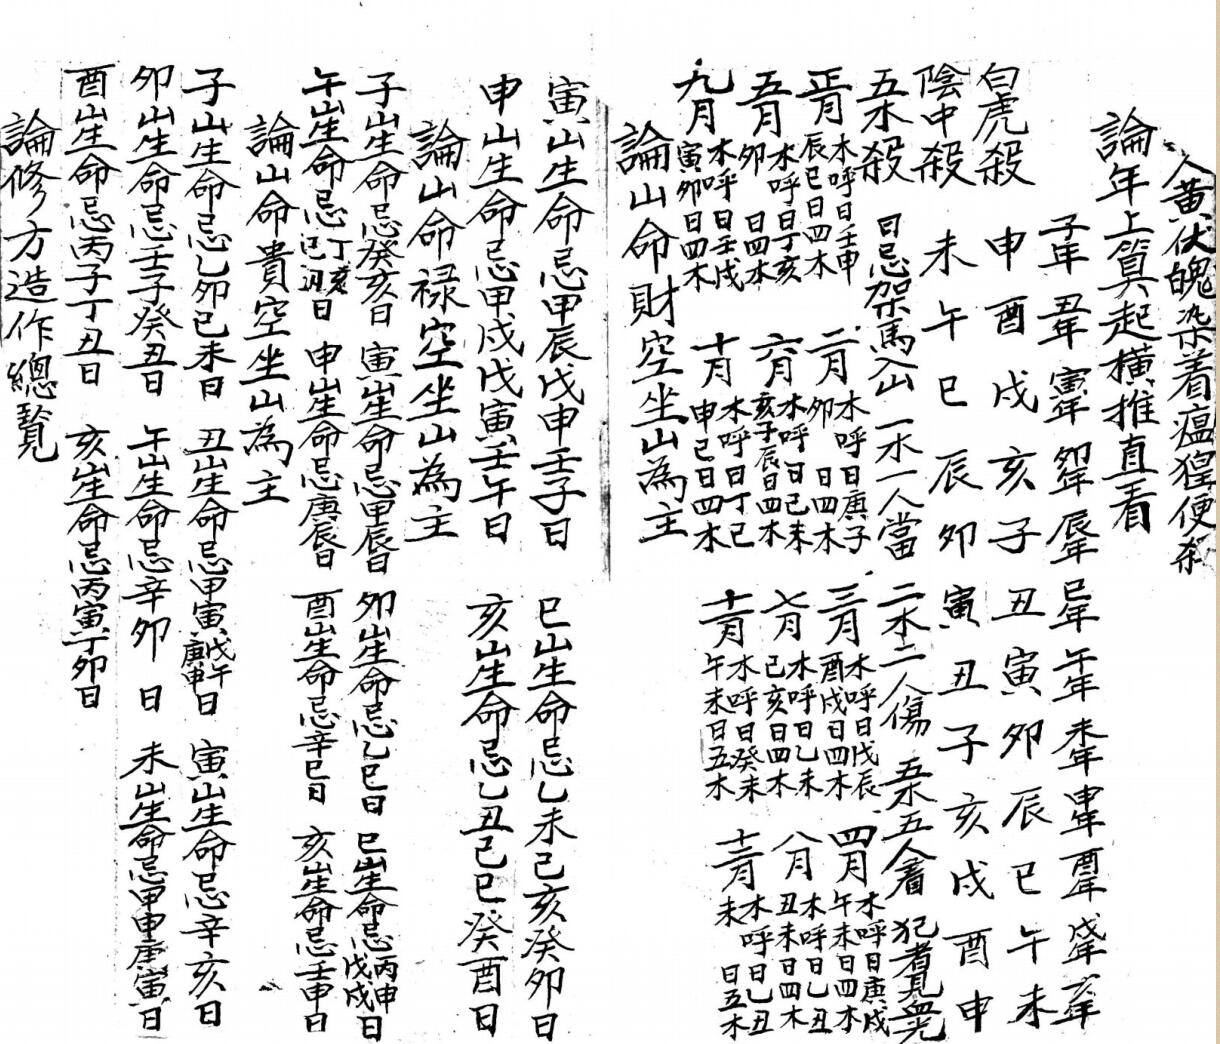 人黃伏魄染着瘟猩便杀
論年上算起橫推直看
子年 丑年 寅年 卯年 辰年 巳年 午年 未年 申年 酉年 戌年 亥年
白虎殺 申 酉 戌 亥 子 丑 寅 卯 辰 巳 午 未
陰中殺 未 午 巳 辰 卯 寅 丑 子 亥 戌 酉 申
五木殺 日忌架馬入山一木一人當 二木二人傷 五木五人着 犯者見血光
正月 木呼日壬申 辰巳日四木 二月 木呼日庚子 卯日四木 三月 木呼日戊辰 酉戌日四木 四月 木呼日庚戌 午未日四木
五月 木呼日丁亥 卯日四木 六月 木呼日己未 亥子辰日四木 七月 木呼日乙未 己亥日四木 八月 木呼日乙丑 丑未日四木
九月 木呼日壬戌 寅卯日四木 十月 木呼日丁己 申己日四木 十一月 木呼日癸未 午未日五木 十二月 木呼日乙丑 未日五木
論山命財空坐山為主
寅山生命忌甲辰戊申壬子日 巳山生命忌乙未己亥癸卯日
申山生命忌甲戌戊寅壬午日 亥山生命忌乙丑己巳癸酉日
論山命祿空坐山為主
子山生命忌癸亥日 寅山生命忌甲辰日 卯山生命忌乙巳日 巳山生命忌丙申戊戌日
午山生命忌丁亥日 申山生命忌庚辰日 酉山生命忌辛巳日 亥山生命忌壬申日
論山命貴空坐山為主
子山生命忌乙卯己未日 丑山生命忌甲寅戊午庚申日 寅山生命忌辛亥日
卯山生命忌壬子癸丑日 午山生命忌辛卯日 未山生命忌甲申庚寅日
酉山生命忌丙子丁丑日 亥山生命忌丙寅丁卯日
論修方造作總覽